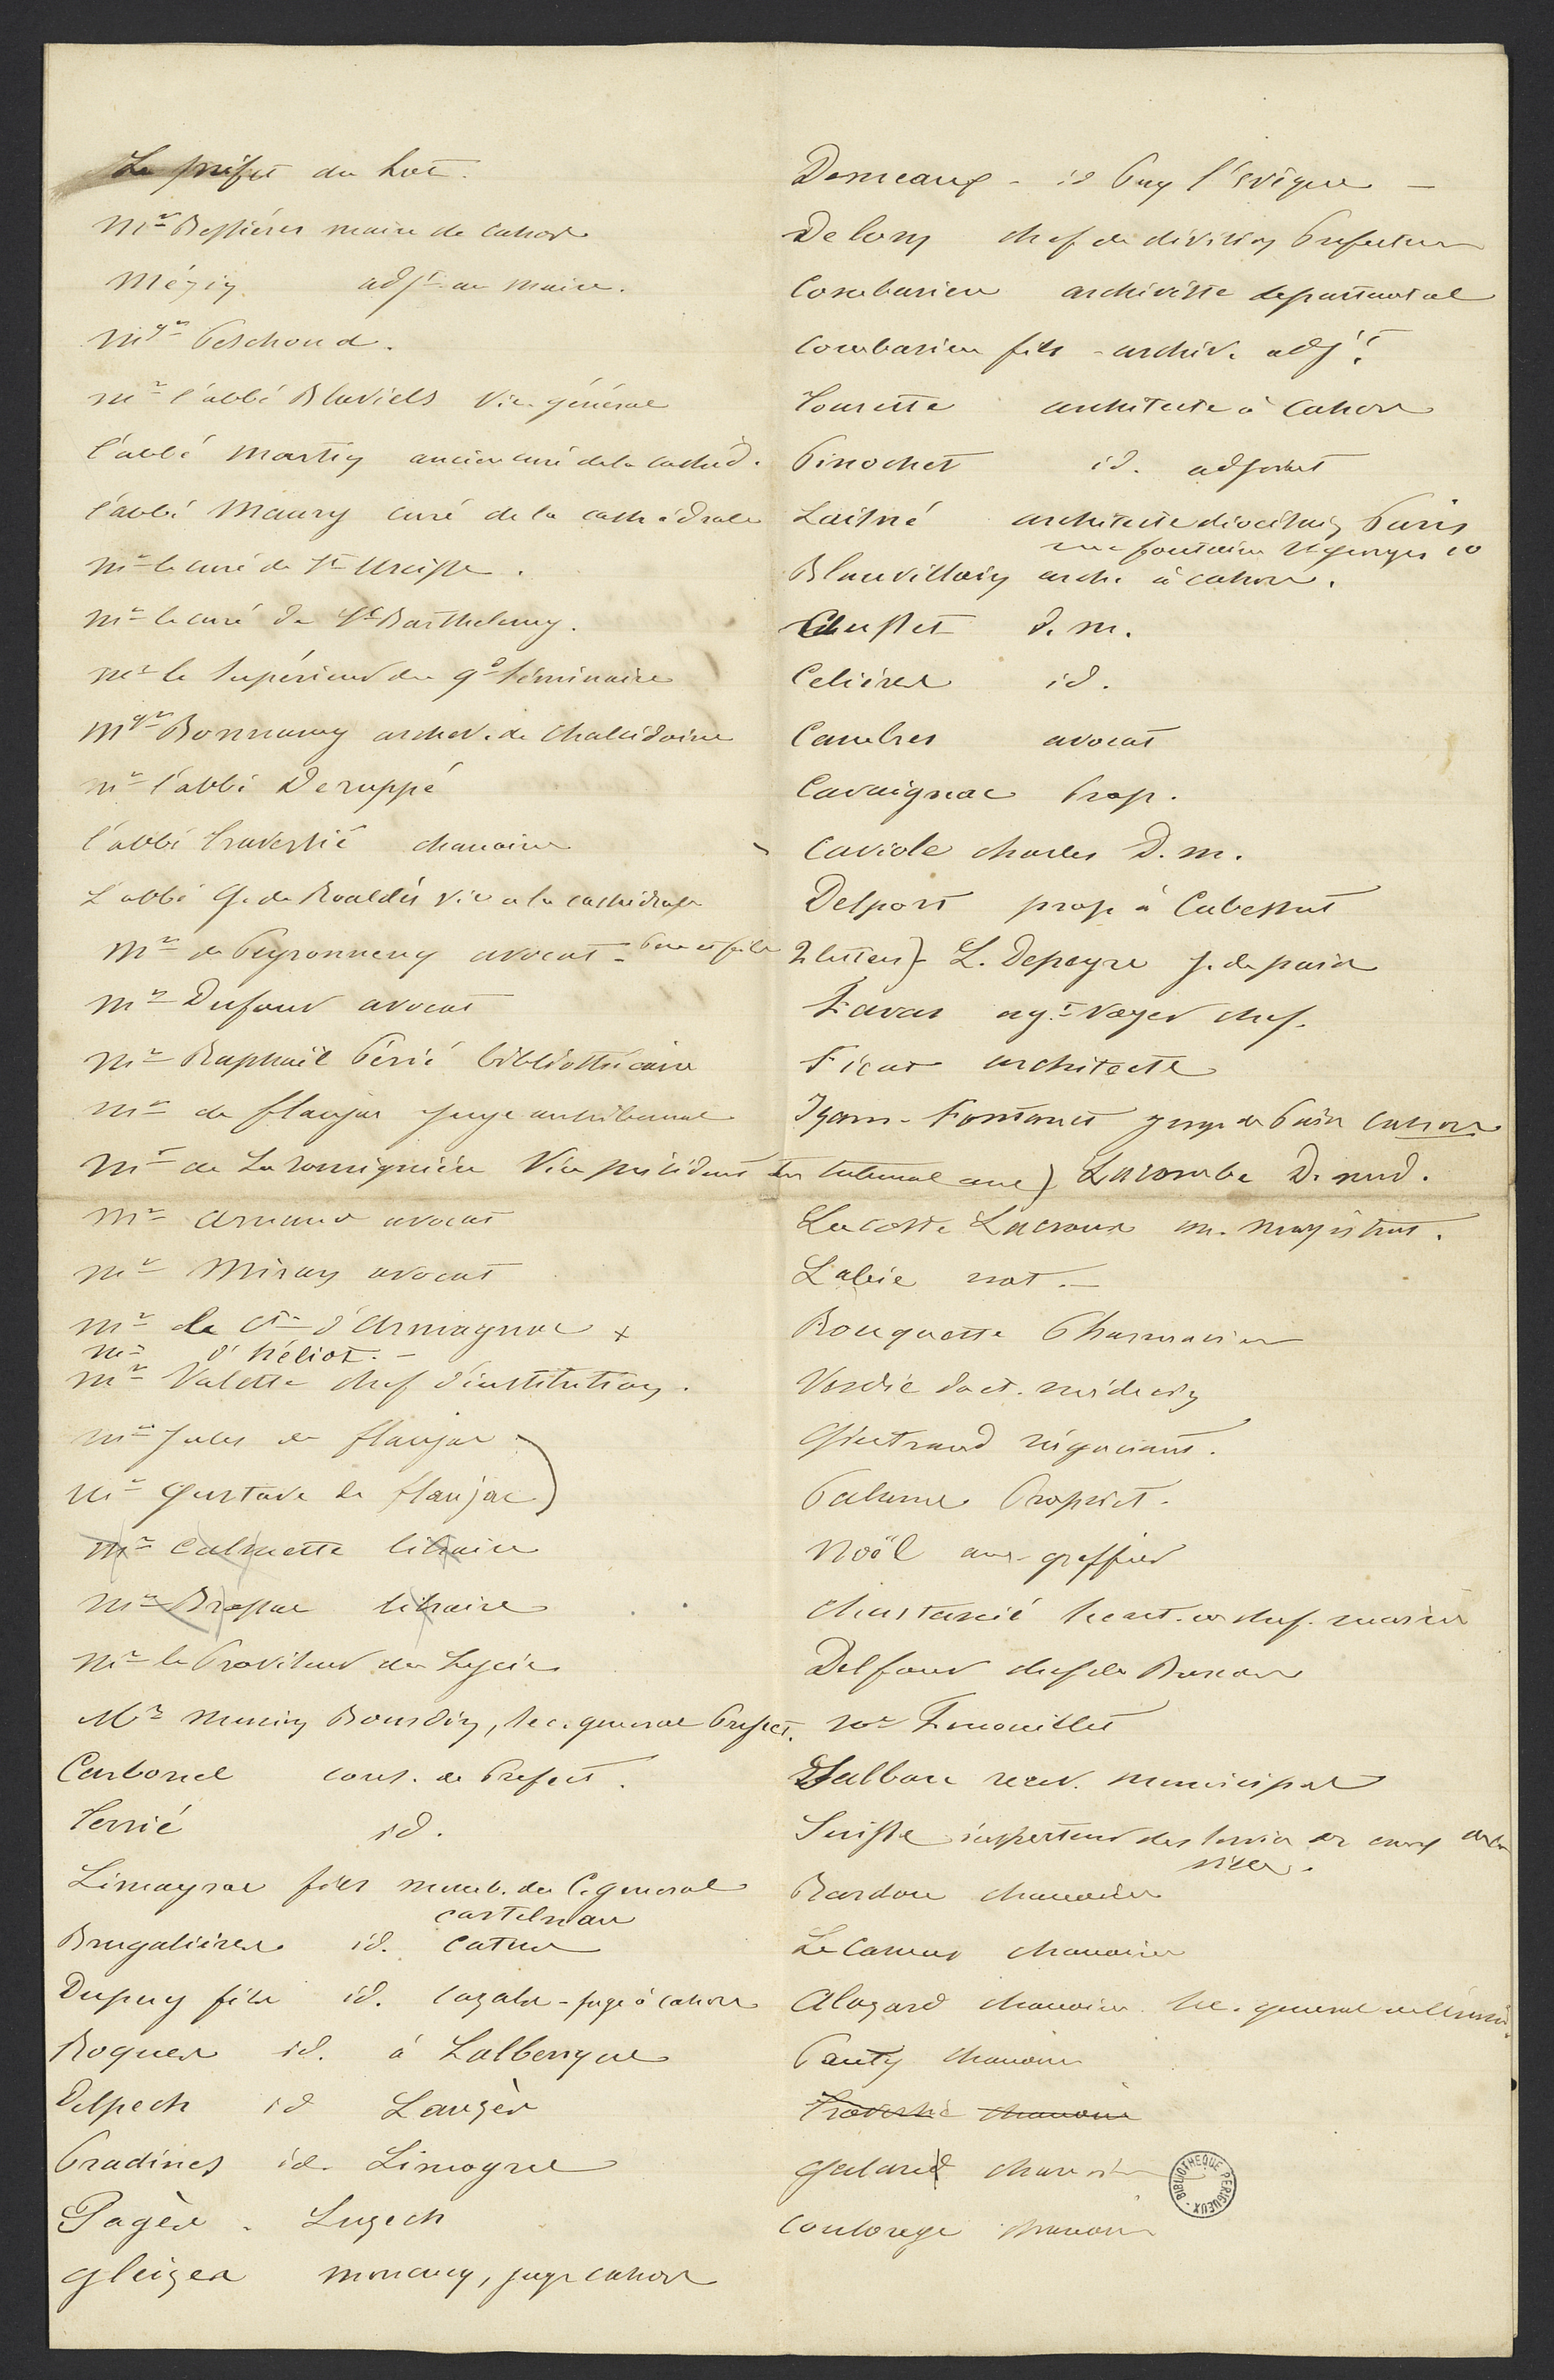 Le préfet du Lot.
Mr Bessières maire de Cahors
Mézin adjt au maire.
Mgr Peschoud.
mr l'abbé Blaviels Vic. général
l'abbé Martin ancien curé de la cathéd.
l'abbé Maury curé de la cathédrale
mr le curé de St Urcisse.
mr le curé de St Barthelemy.
mr le Supérieur du gd Séminaire
Mgr Bonnamy archev. de Chalcédoine
mr l'abbé Deruppé
l'abbé Traversié chanoine
L'abbé G. de Roaldès vic. a la cathédrale
Mr de Peyronnenq avocat - Pere et fils 2 lettres)
Mr Dufour avocat
Mr Raphaël Périé bibliothécaire
Mr de flaujac juge au tribunal
Mr de Laromiguière Vice président du tribunal anc)
Mr Armand avocat
Mr Miran avocat
Mr le Cte d'Armagnac x
Mr d'héliot. -
Mr Valette chef d'institution.
Mr Jules de flaujac
Mr Gustave de flaujac)
Mr Calmette libraire
Mr Brassac libraire
Mr le Proviseur du Lycée
Mr Bourdin, sec. general Prefect.
Carbonel cons. de Prefect.
Terrié id.
Limayrac fils memb. du C. general
castelnau
Brugalières id. Catus
Dupuy fils id. Cazals - juge à Cahors
Roques id. à Lalbenque
Delpech id Lauzès
Pradines id. Limogne
Pagès . Luzech
Gleizes moncuq, juge cahors
Demeaux - id Puy l'Evèque -
Delom chef de division Prefecture
Combarieu archiviste departmental
Combarieu fils - archiv. adjt.
Tourette architecte à Cahors
Pinochet id. adjoint
Laisné architecte diocésain Paris
rue fontaine St georges 10
Blanvillain arch. à cahors.
Clusset d. m.
Celières id.
Cambres avocat
Cavaignac Prop.
Caviole charles D. m.
Delport prop à Cabessut
L. Depeyre j. de paix
Favas agt Voyer chef.
Ficat architecte
Izarn-Fontanet juge de Paix Cahors
Lacombe D. med.
Lacoste Lacroux an. magistrat.
Labie not. -
Rouquette Pharmacien
Verdié doct. médecin
Gintrand négociant.
Palame Propriét.
Noël anc. greffier
Chastanié Secret. en chef. mairie
Delfour chef de Bureau
mr Fenouillet
Salbau recev. municipal
Suisse inspecteur des
Bardou chanoine
Le Camus chanoine
Alazard chanoine sec. general
Pauty chanoine
Traversié chanoine
Galard chanoine
Coulonge chanoine
BIBLIOTHEQUE PERIGUEUX